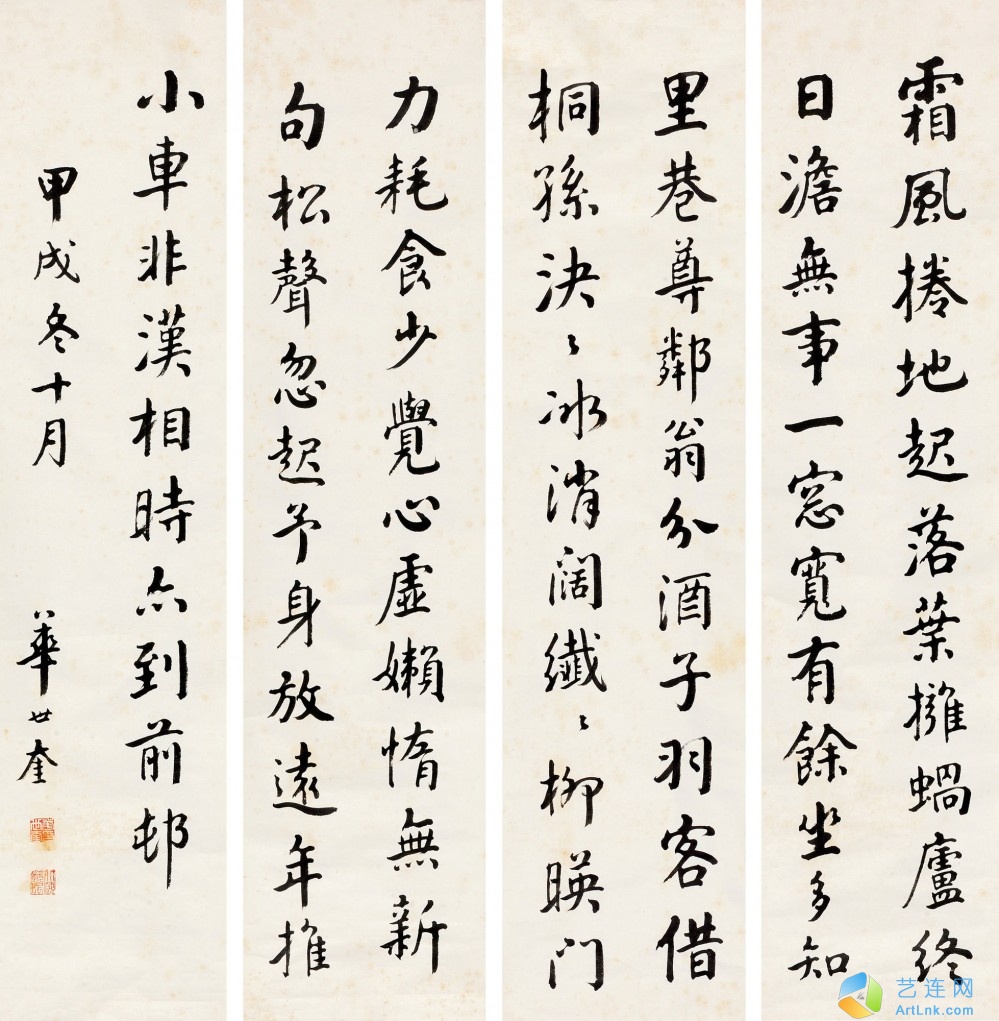 霜風捲地起落葉擁蝸廬終
日澹無事一窓寬有餘坐多知
里巷尊鄰翁分酒子羽客借
桐孫決〻冰消闊纖〻柳暎門
力耗食少覺心虛嬾惰無新
句松聲忽起予身放遠年推
小車非漢相時亦到前邨
甲戌冬十月
華世奎
艺连网
ArtLnk.com